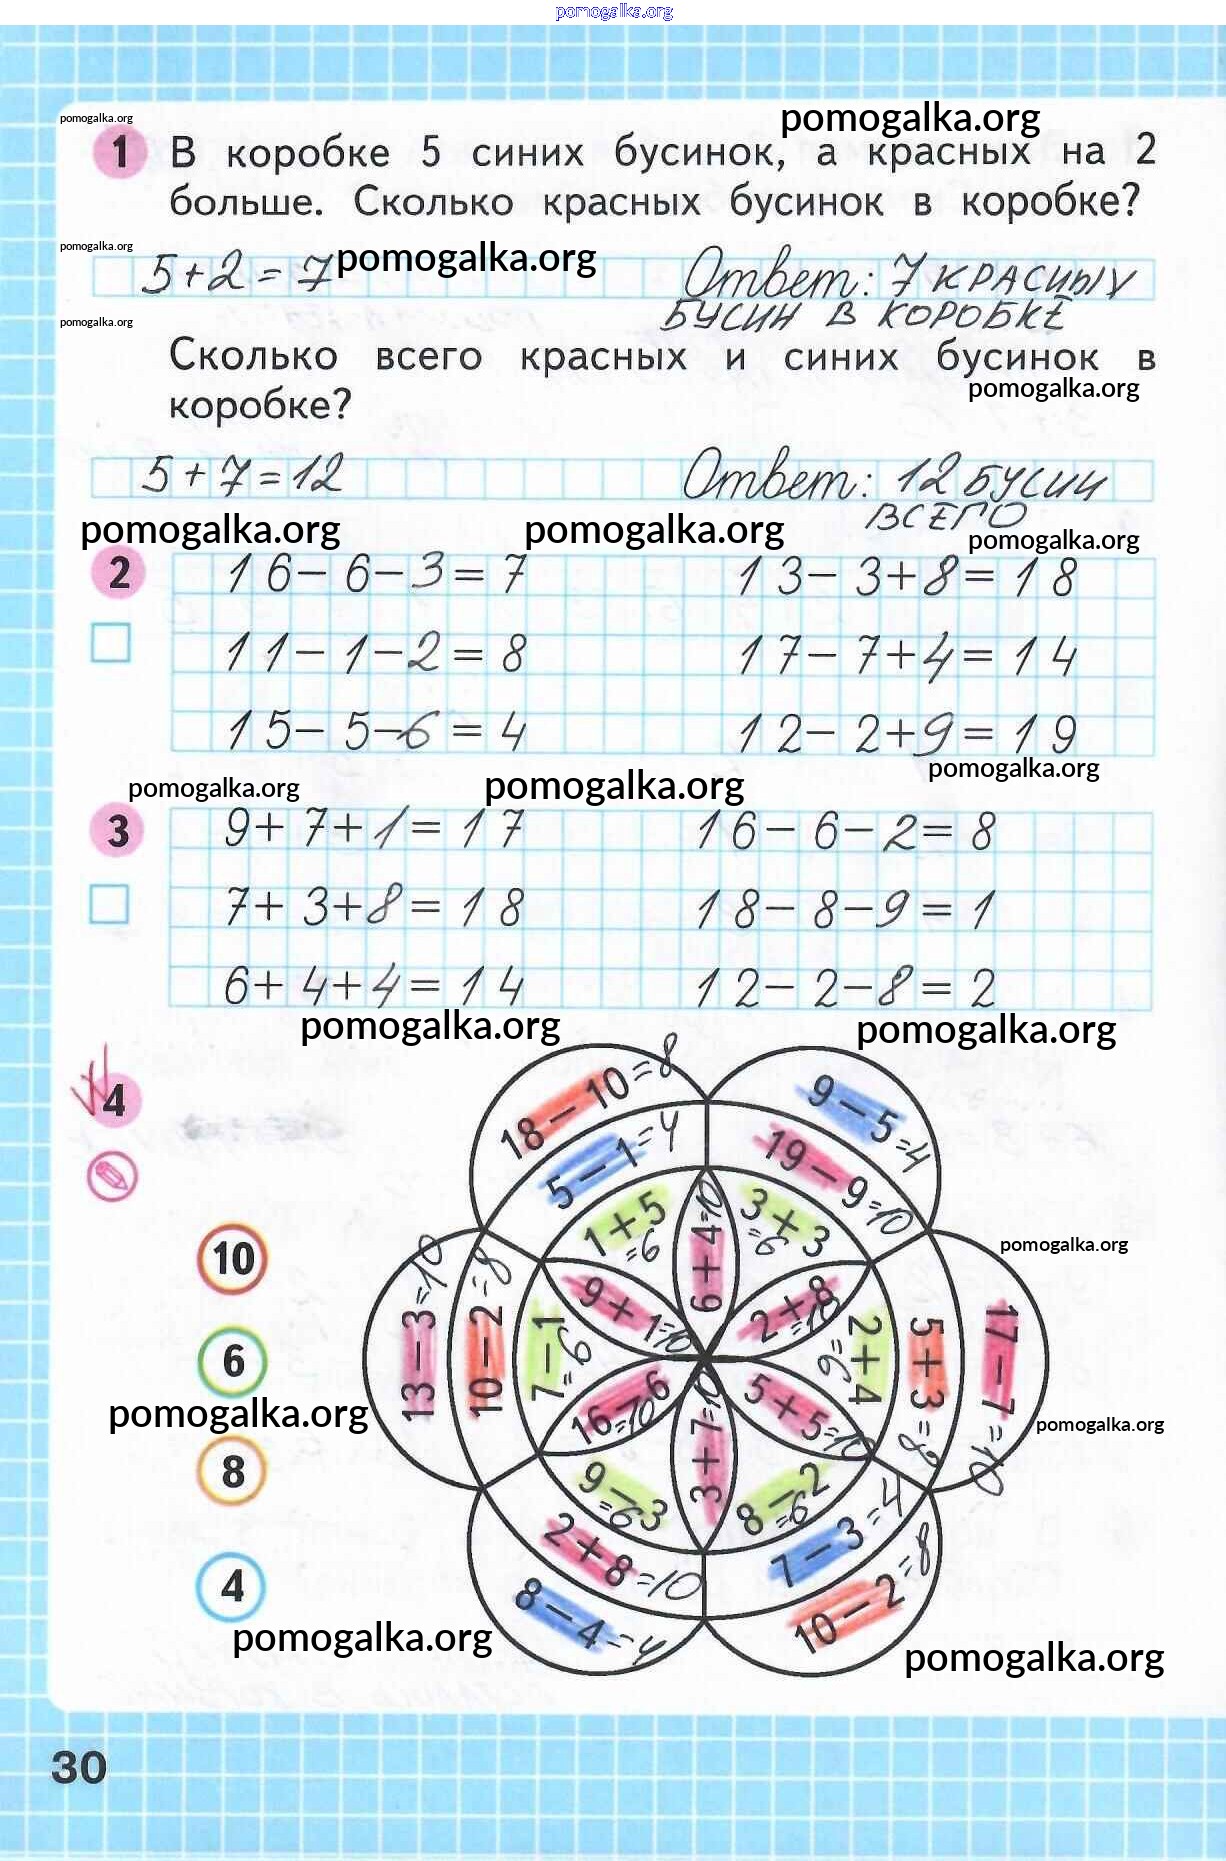 pomogalka.org
pomogalka.org
pomogalka.org
1 В коробке 5 синих бусинок, а красных на 2
больше. Сколько красных бусинок в коробке?
pomogalka.org
pomogalka.org
5+2=7 Ответ: 7 красных
бусин в коробке
pomogalka.org
Сколько всего красных и синих бусинок в
коробке?
pomogalka.org
5+7=12 Ответ: 12 бусин
всего
pomogalka.org pomogalka.org
pomogalka.org
2 16-6-3=7 13-3+8=18
11-1-2=8 17-7+4=14
15-5-6=4 12-2+9=19
pomogalka.org pomogalka.org pomogalka.org
3 9+7+1=17 16-6-2=8
7+3+8=18 18-8-9=1
6+4+4=14 12-2-8=2
pomogalka.org pomogalka.org
4
18-10=8
9-5=4
5-1=4
19-9=10
1+5=6
6+4=10
3+3=6
10
pomogalka.org
13-3=10
10-2=8
7-1=6
9+1=10
2+8=10
2+4=6
5+3=8
17-7=10
6
pomogalka.org
16-6=10
3+7=10
5+5=10
pomogalka.org
8
9-3=6
8-2=6
2+8=10
7-3=4
4
8-4=4
10-2=8
pomogalka.org
pomogalka.org
30